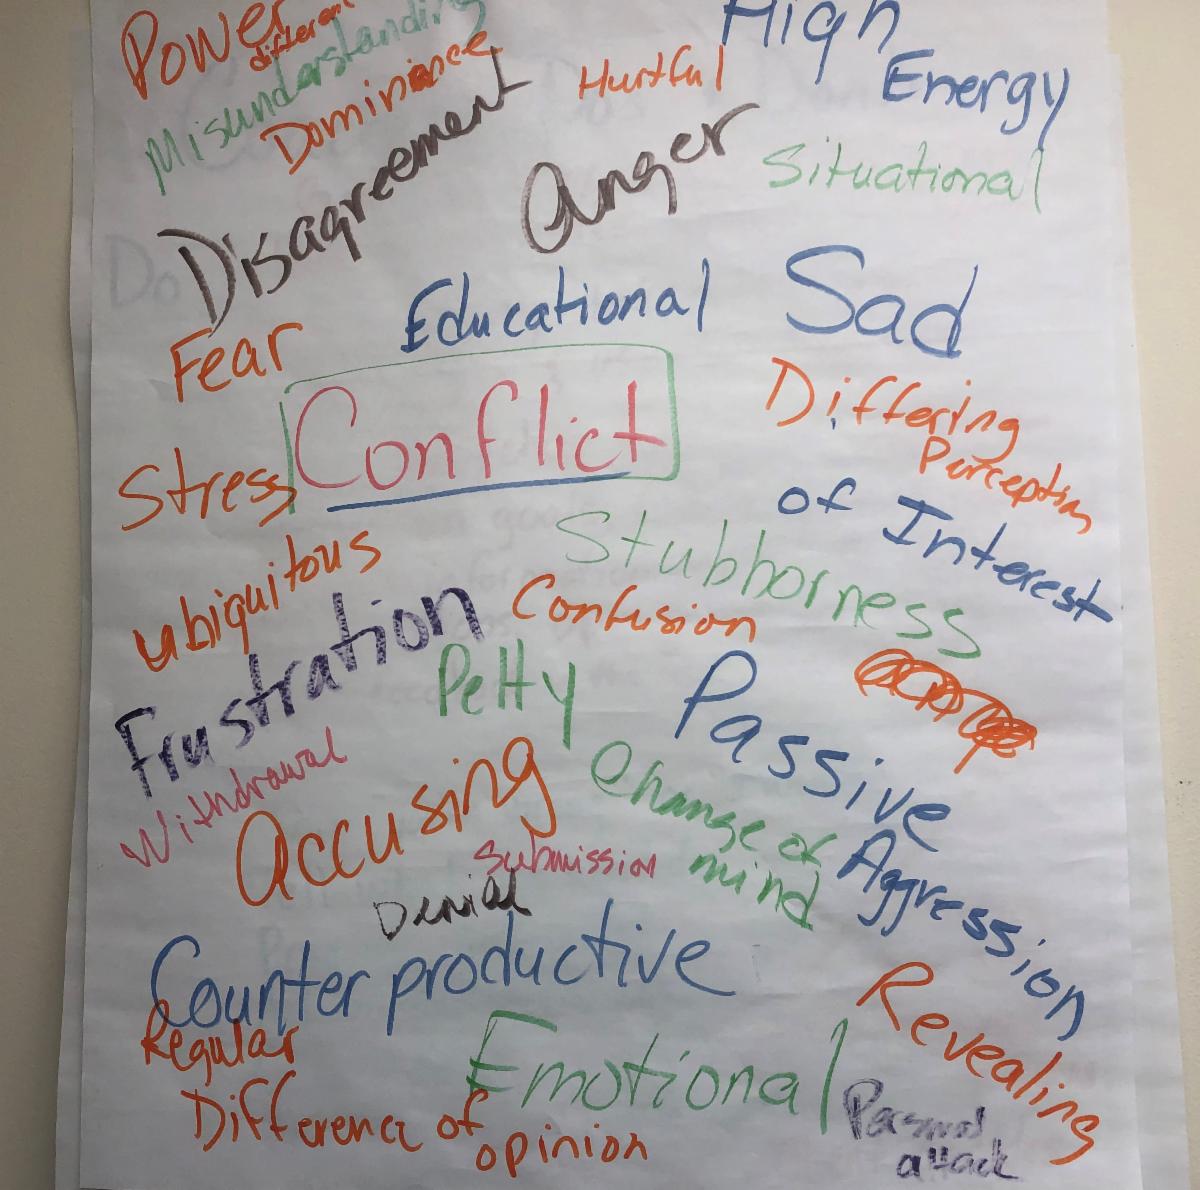 Power
different
Misunderstanding
Dominance
Hurtful
High
Energy
Disagreement
Anger
Situational
Educational
Sad
Fear
Conflict
Differing
Perception
Stress
of Interest
Stubborness
ubiquitous
Confusion
Frustration
Petty
Passive
Aggression
Withdrawal
Accusing
Change of
mind
Submission
Denial
Counter productive
Revealing
Regular
Emotional
Difference of
opinion
Personal
attack